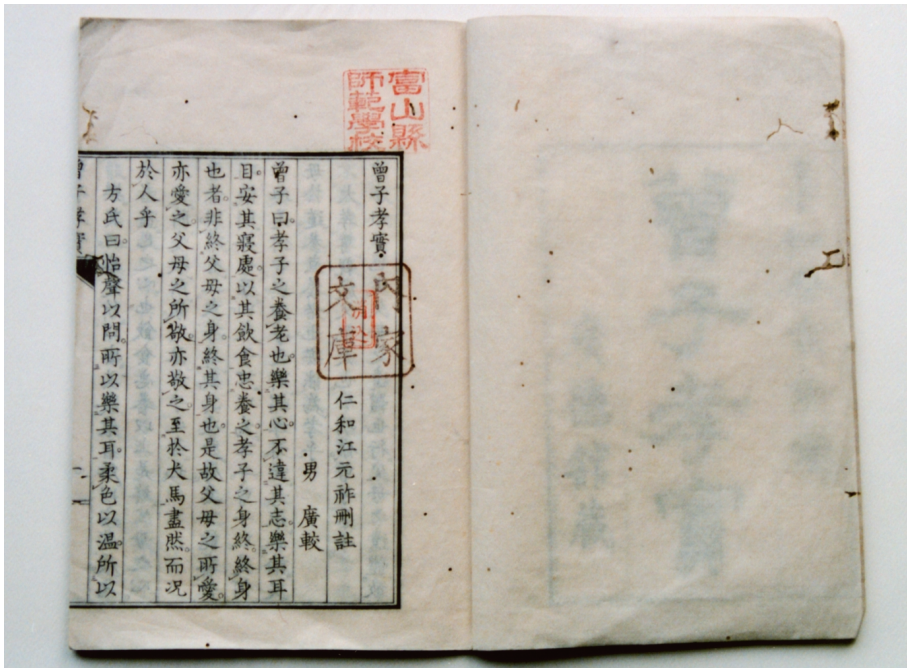 富山縣
師範學校
曾子孝實
仁和江元祚刪註
男 廣較
曾子曰孝子之養老也樂其心不違其志樂其耳
目安其寢處以其飲食忠養之孝子之身終終身
也者非終父母之身終其身也是故父母之所愛
亦愛之父母之所敬亦敬之至於犬馬盡然而况
於人乎
方氏曰怡聲以問所以樂其耳柔色以溫所以
曾子孝實
家
文庫